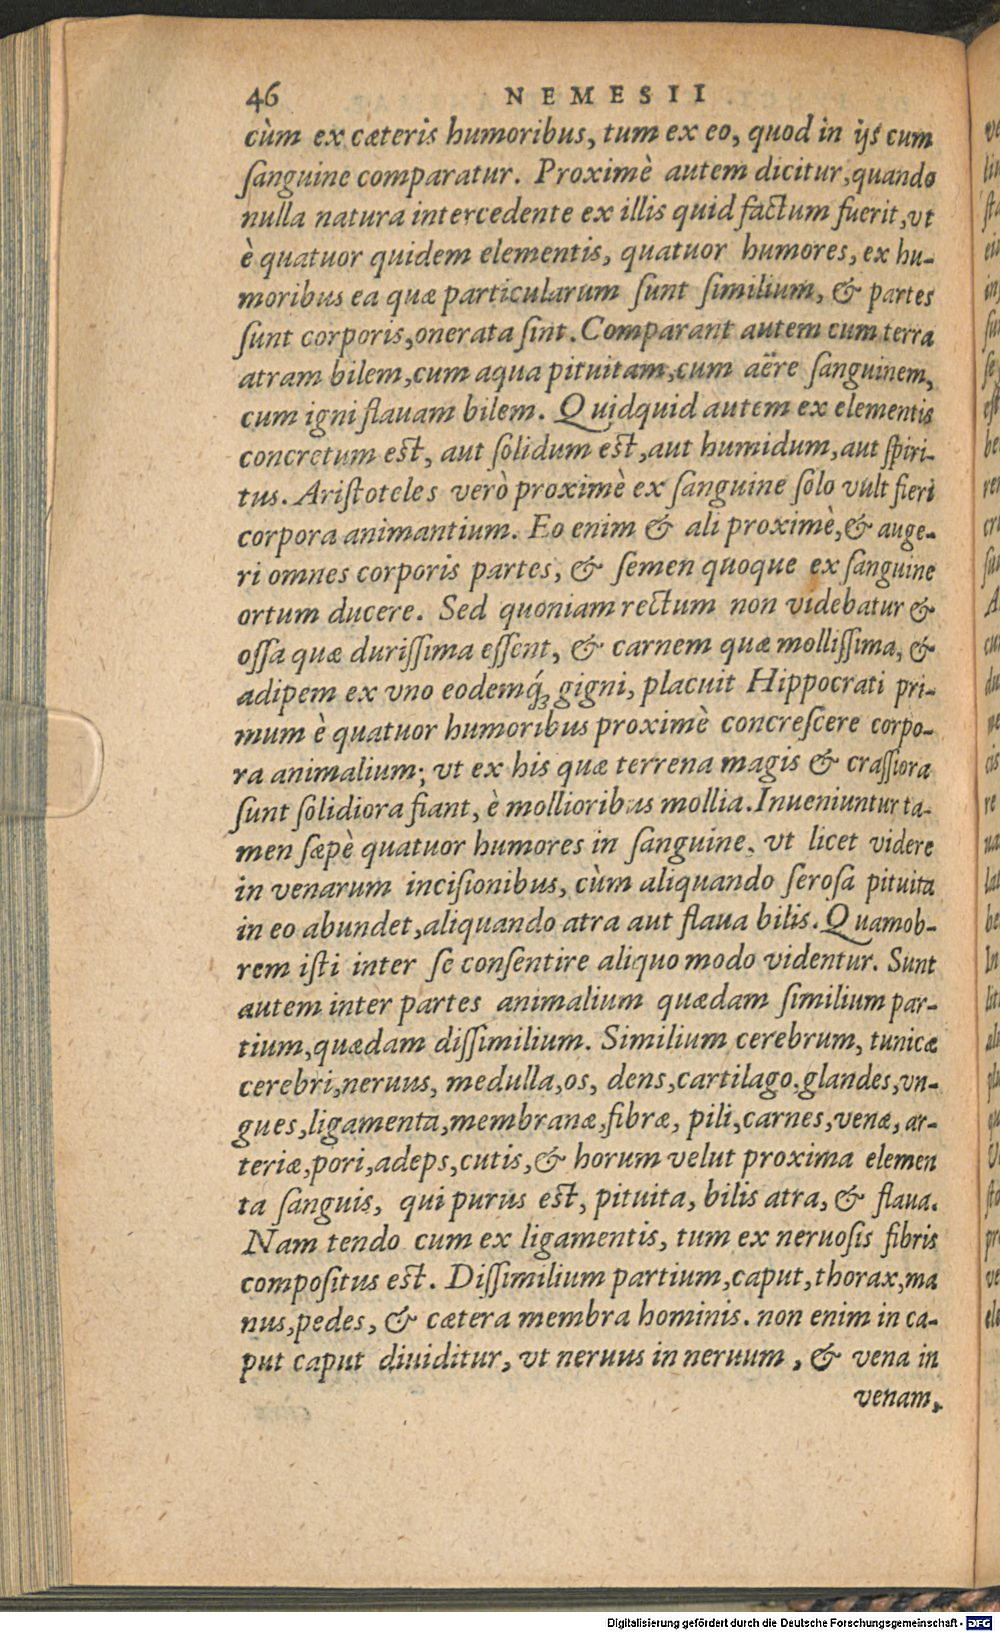 46 NEMESII
cùm ex cæteris humoribus, tum ex eo, quod in ijs cum
ſanguine comparatur. Proximè autem dicitur, quando
nulla natura intercedente ex illis quid factum fuerit, vt
è quatuor quidem elementis, quatuor humores, ex hu-
moribus ea quæ particularum ſunt ſimilium, & partes
ſunt corporis, onerata ſint. Comparant autem cum terra
atram bilem, cum aqua pituitam, cum aëre ſanguinem,
cum igni flauam bilem. Quidquid autem ex elementis
concretum eſt, aut ſolidum eſt, aut humidum, aut ſpiri-
tus. Ariſtoteles verò proximè ex ſanguine ſolo vult fieri
corpora animantium. Eo enim & ali proximè, & auge-
ri omnes corporis partes, & ſemen quoque ex ſanguine
ortum ducere. Sed quoniam rectum non videbatur &
oſſa quæ duriſſima eſſent, & carnem quæ molliſſima, &
adipem ex vno eodemq́; gigni, placuit Hippocrati pri-
mum è quatuor humoribus proximè concreſcere corpo-
ra animalium; vt ex his quæ terrena magis & craſſiora
ſunt ſolidiora fiant, è mollioribus mollia. Inueniuntur ta-
men ſæpè quatuor humores in ſanguine, vt licet videre
in venarum inciſionibus, cùm aliquando ſeroſa pituita
in eo abundet, aliquando atra aut flaua bilis. Quamob-
rem iſti inter ſe conſentire aliquo modo videntur. Sunt
autem inter partes animalium quædam ſimilium par-
tium, quædam diſſimilium. Similium cerebrum, tunicæ
cerebri, neruus, medulla, os, dens, cartilago, glandes, vn-
gues, ligamenta, membranæ, fibræ, pili, carnes, venæ, ar-
teriæ, pori, adeps, cutis, & horum velut proxima elemen
ta ſanguis, qui purus eſt, pituita, bilis atra, & flaua.
Nam tendo cum ex ligamentis, tum ex neruoſis fibris
compoſitus eſt. Diſſimilium partium, caput, thorax, ma
nus, pedes, & cætera membra hominis. non enim in ca-
put caput diuiditur, vt neruus in neruum, & vena in
venam,
Digitalisierung gefördert durch die Deutsche Forschungsgemeinschaft - DFG